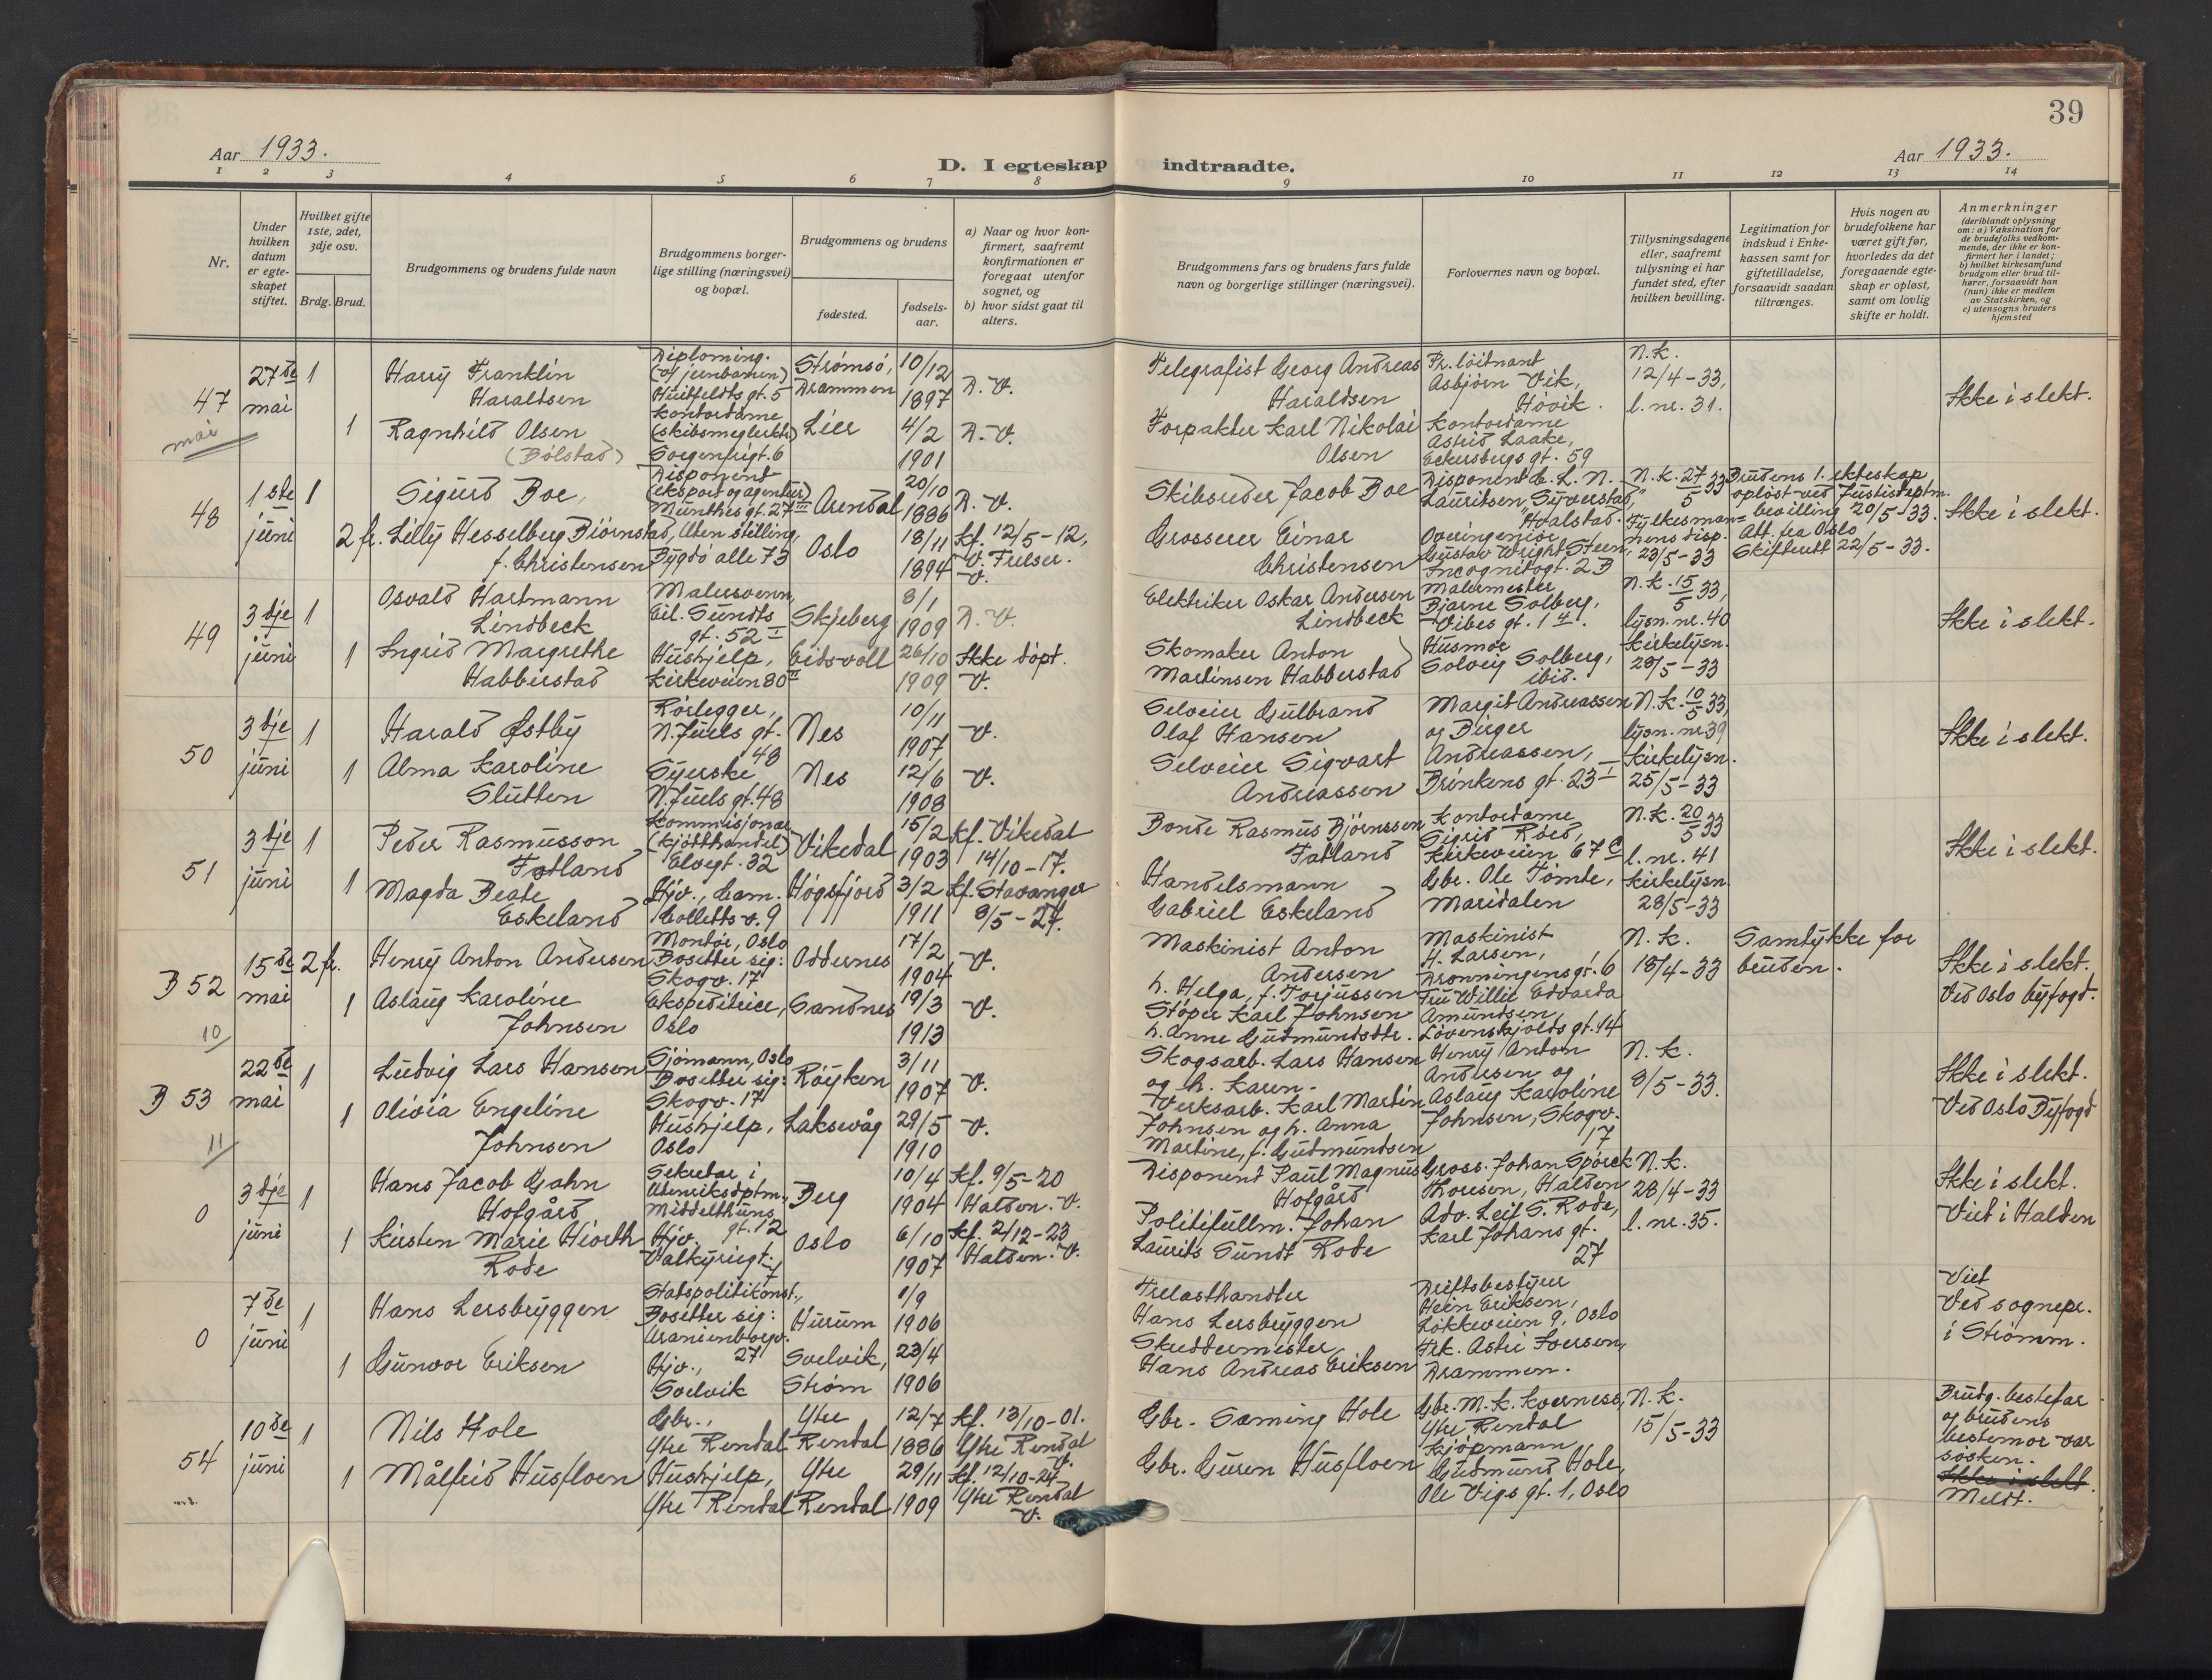 39
Aar 1933.
D. I egteskap indtraadte.
Aar 1933.
1 2 3 4 5 6 7 8 9 10 11 12 13 14
Nr.
Under hvilken datum er egteskapet stiftet.
Hvilket gifte 1ste, 2det, 3dje osv.
Brdg. Brud.
Brudgommens og brudens fulde navn
Brudgommens borgerlige stilling (næringsvei) og bopæl.
Brudgommens og brudens
fødested.
fødselsaar.
a) Naar og hvor konfirmert, saafremt konfirmationen er foregaat utenfor sognet, og
b) hvor sidst gaat til alters.
Brudgommens fars og brudens fars fulde navn og borgerlige stillinger (næringsvei).
Forlovernes navn og bopæl.
Tillysningsdagene eller, saafremt tillysning ei har fundet sted, efter hvilken bevilling.
Legitimation for indskud i Enkekassen samt for giftetilladelse, forsaavidt saadan tiltrænges.
Hvis nogen av brudefolkene har været gift før, hvorledes da det foregaaende egteskap er opløst, samt om lovlig skifte er holdt.
Anmerkninger
(deriblandt oplysning om: a) Vaksination for de brudefolks vedkommende, der ikke er konfirmert her i landet;
b) hvilket kirkesamfund brudgom eller brud tilhører, forsaavidt han (hun) ikke er medlem av Statskirken, og
c) utensogns bruders hjemsted
47
mai
27de mai
1
Harry Franklin Haraldsen
Diploming. (v/ jernbanen) Huitfeldts gt. 5
Strømsö, Drammen
10/12 1897
D. V.
Telegrafist Georg Andreas Haraldsen
Pr. löitnant Asbjörn Vik, Hövik.
N.k. 12/4-33, l. nr. 31.
Ikke i slekt.
1
Ragnhild Olsen (Bölstad)
Kontordame (skibsmeglerktr.) Sorgenfrigt. 6
Lier
4/2 1901
D. V.
Forpakter Karl Nikolai Olsen
Kontordame Astrid Laake, Eckersbergs gt. 59
48
1ste juni
1
Sigurd Boe,
Disponent (eksport og agentur) Munthes gt. 27 III
Arendal
20/10 1886
D. V.
Skibsreder Jacob Boe
Disponent C. L. N. Lauritsen, "Syverstad," Hvalstad.
N.k. 27/5 33
Brudens 1. ekteskap opløst ved Justisdeptm. bevilling 20/5-33.
Ikke i slekt.
2 fr.
Lilly Hesselberg Biörnstad, f. Christensen
Uten stilling, Bygdö alle 73
Oslo
18/11 1894
Kf. 12/5-12, V. Frelser. V.
Grosserer Einar Christensen
Overingeniör Gustav Wright Steen, Incognitogt. 2 B
Fylkesmannens disp. 23/5-33
Att. fra Oslo Skifterett 22/5-33.
49
3dje juni
1
Osvald Hartmann Lindbeck
Malersvenn, Eil. Sundts gt. 52 I
Skjeberg
8/1 1909
D. V.
Elektriker Oskar Andersen Lindbeck
Malermester Bjarne Solberg, Vibes gt. 14.
N.k. 15/5 33, lysn. nr. 40
Ikke i slekt.
1
Ingrid Margrethe Habberstad
Hushjelp, Kirkeveien 80 II
Eidsvoll
26/10 1909
Ikke döpt. V.
Skomaker Anton Martinsen Habberstad
Husmor Solveig Solberg, ibid.
Kirkelysn. 28/5-33
50
3dje juni
1
Harald Østby
Rörlegger, N. Juels gt. 48
Nes
10/11 1907
V.
Selveier Gulbrand Olaf Hansen
Margit Andreassen og Birger Andreassen, Brinkens gt. 23 I
N.k. 10/5 33, lysn. nr. 39
Ikke i slekt.
1
Alma Karoline Slutten
Syerske N. Juels gt. 48
Nes
12/6 1908
V.
Selveier Sigvart Andreassen
Kirkelysn. 25/5-33
51
3dje juni
1
Peder Rasmusson Fatland
Kommisjonær (kjötthandel) Elvegt. 32
Vikedal
15/2 1903
Kf. Vikedal 14/10-17.
Bonde Rasmus Björnssen Fatland
Kontordame Sigrid Röed, Kirkeveien 67 C
N.k. 20/5 33 l. nr. 41
Ikke i slekt.
1
Magda Beate Eskeland
Hjv., Cam. Colletts v. 9
Högsfjord
3/2 1911
Kf. Stavanger 8/5-27.
Handelsmann Gabriel Eskeland
Gbr. Ole Tömte, Maridalen
Kirkelysn. 28/5-33
B 52
10/
15de mai
2 fr.
Henry Anton Andersen
Montör, Oslo Bosetter sig: Skogv. 17
Oddernes
17/2 1904
V.
Maskinist Anton Andersen h. Helga, f. Torjussen
Maskinist H. Larsen, Dronningens gt. 6
N.k. 18/4-33
Samtykke for bruden.
Ikke i slekt. Ved Oslo byfogd.
1
Aslaug Karoline Johnsen
Ekspeditrice, Oslo
Sandnes
19/3 1913
V.
Stöper Karl Johnsen h. Anne Gudmundsdtr.
Fru Willie Edvarda Amundsen, Lövenskjolds gt. 14
B 53
11/
22de mai
1
Ludvig Lars Hansen
Sjömann, Oslo Bosetter sig: Skogv. 17
Röyken
3/11 1907
V.
Skogsarb. Lars Hansen og h. Karen.
Henry Anton Andersen og Aslaug Karoline Johnsen, Skogv. 17
N.k. 8/5-33.
Ikke i slekt. Ved Oslo Byfogd
1
Olivia Engeline Johnsen
Hushjelp, Oslo
Laksevåg
29/5 1910
V.
Verksarb. Karl Martin Johnsen og h. Anna Martine, f. Gudmundsen
0
3dje juni
1
Hans Jacob Gahn Hofgård
Sekretær i Utenriksdptm., Middelthuns gt. 12
Berg
10/4 1904
Kf. 9/5-20 Halden. V.
Disponent Paul Magnus Hofgård
Gross. Johan Spörck Thoresen, Halden
N.k. 28/4-33 l. nr. 35.
Ikke i slekt. Viet i Halden
1
Kirsten Marie Hiorth Rode
Hjv. Valkyriegt. 7
Oslo
6/10 1907
Kf. 2/12-23 Halden. V.
Politifullm. Johan Laurits Sundt Rode
Adv. Leif S. Rode, Karl Johans gt. 27
0
7de juni
1
Hans Lersbryggen
Statspolitikonst., Bosetter sig: Uranienborgv. 27
Hurum
1/9 1906
Trelasthandler Hans Lersbryggen
Driftsbestyrer Hein Eriksen, Lökkeveien 9, Oslo
Viet Ved sognepr. i Strömm.
1
Gunvor Eriksen
Hjv., Svelvik
Svelvik, Strøm
23/4 1906
Skreddermester Hans Andreas Eriksen
Frk. Astri Iversen, Drammen.
54
10de juni
1
Nils Hole
Gbr., Ytre Rendal
Ytre Rendal
12/7 1886
Kf. 13/10-01. Ytre Rendal V.
Gbr. Sæming Hole
Gbr. M. K. Kverness, Ytre Rendal
N.k. 15/5-33
Brudg. bestefar og brudens bestemor var søsken.
1
Målfrid Husfloen
Hushjelp, Ytre Rendal
Ytre Rendal
29/11 1909
Kf. 12/10-24 Ytre Rendal V.
Gbr. Guren Husfloen
Kjöpmann Gudmund Hole, Ole Vigs gt. 1, Oslo
Ikke i slekt. Meldt.